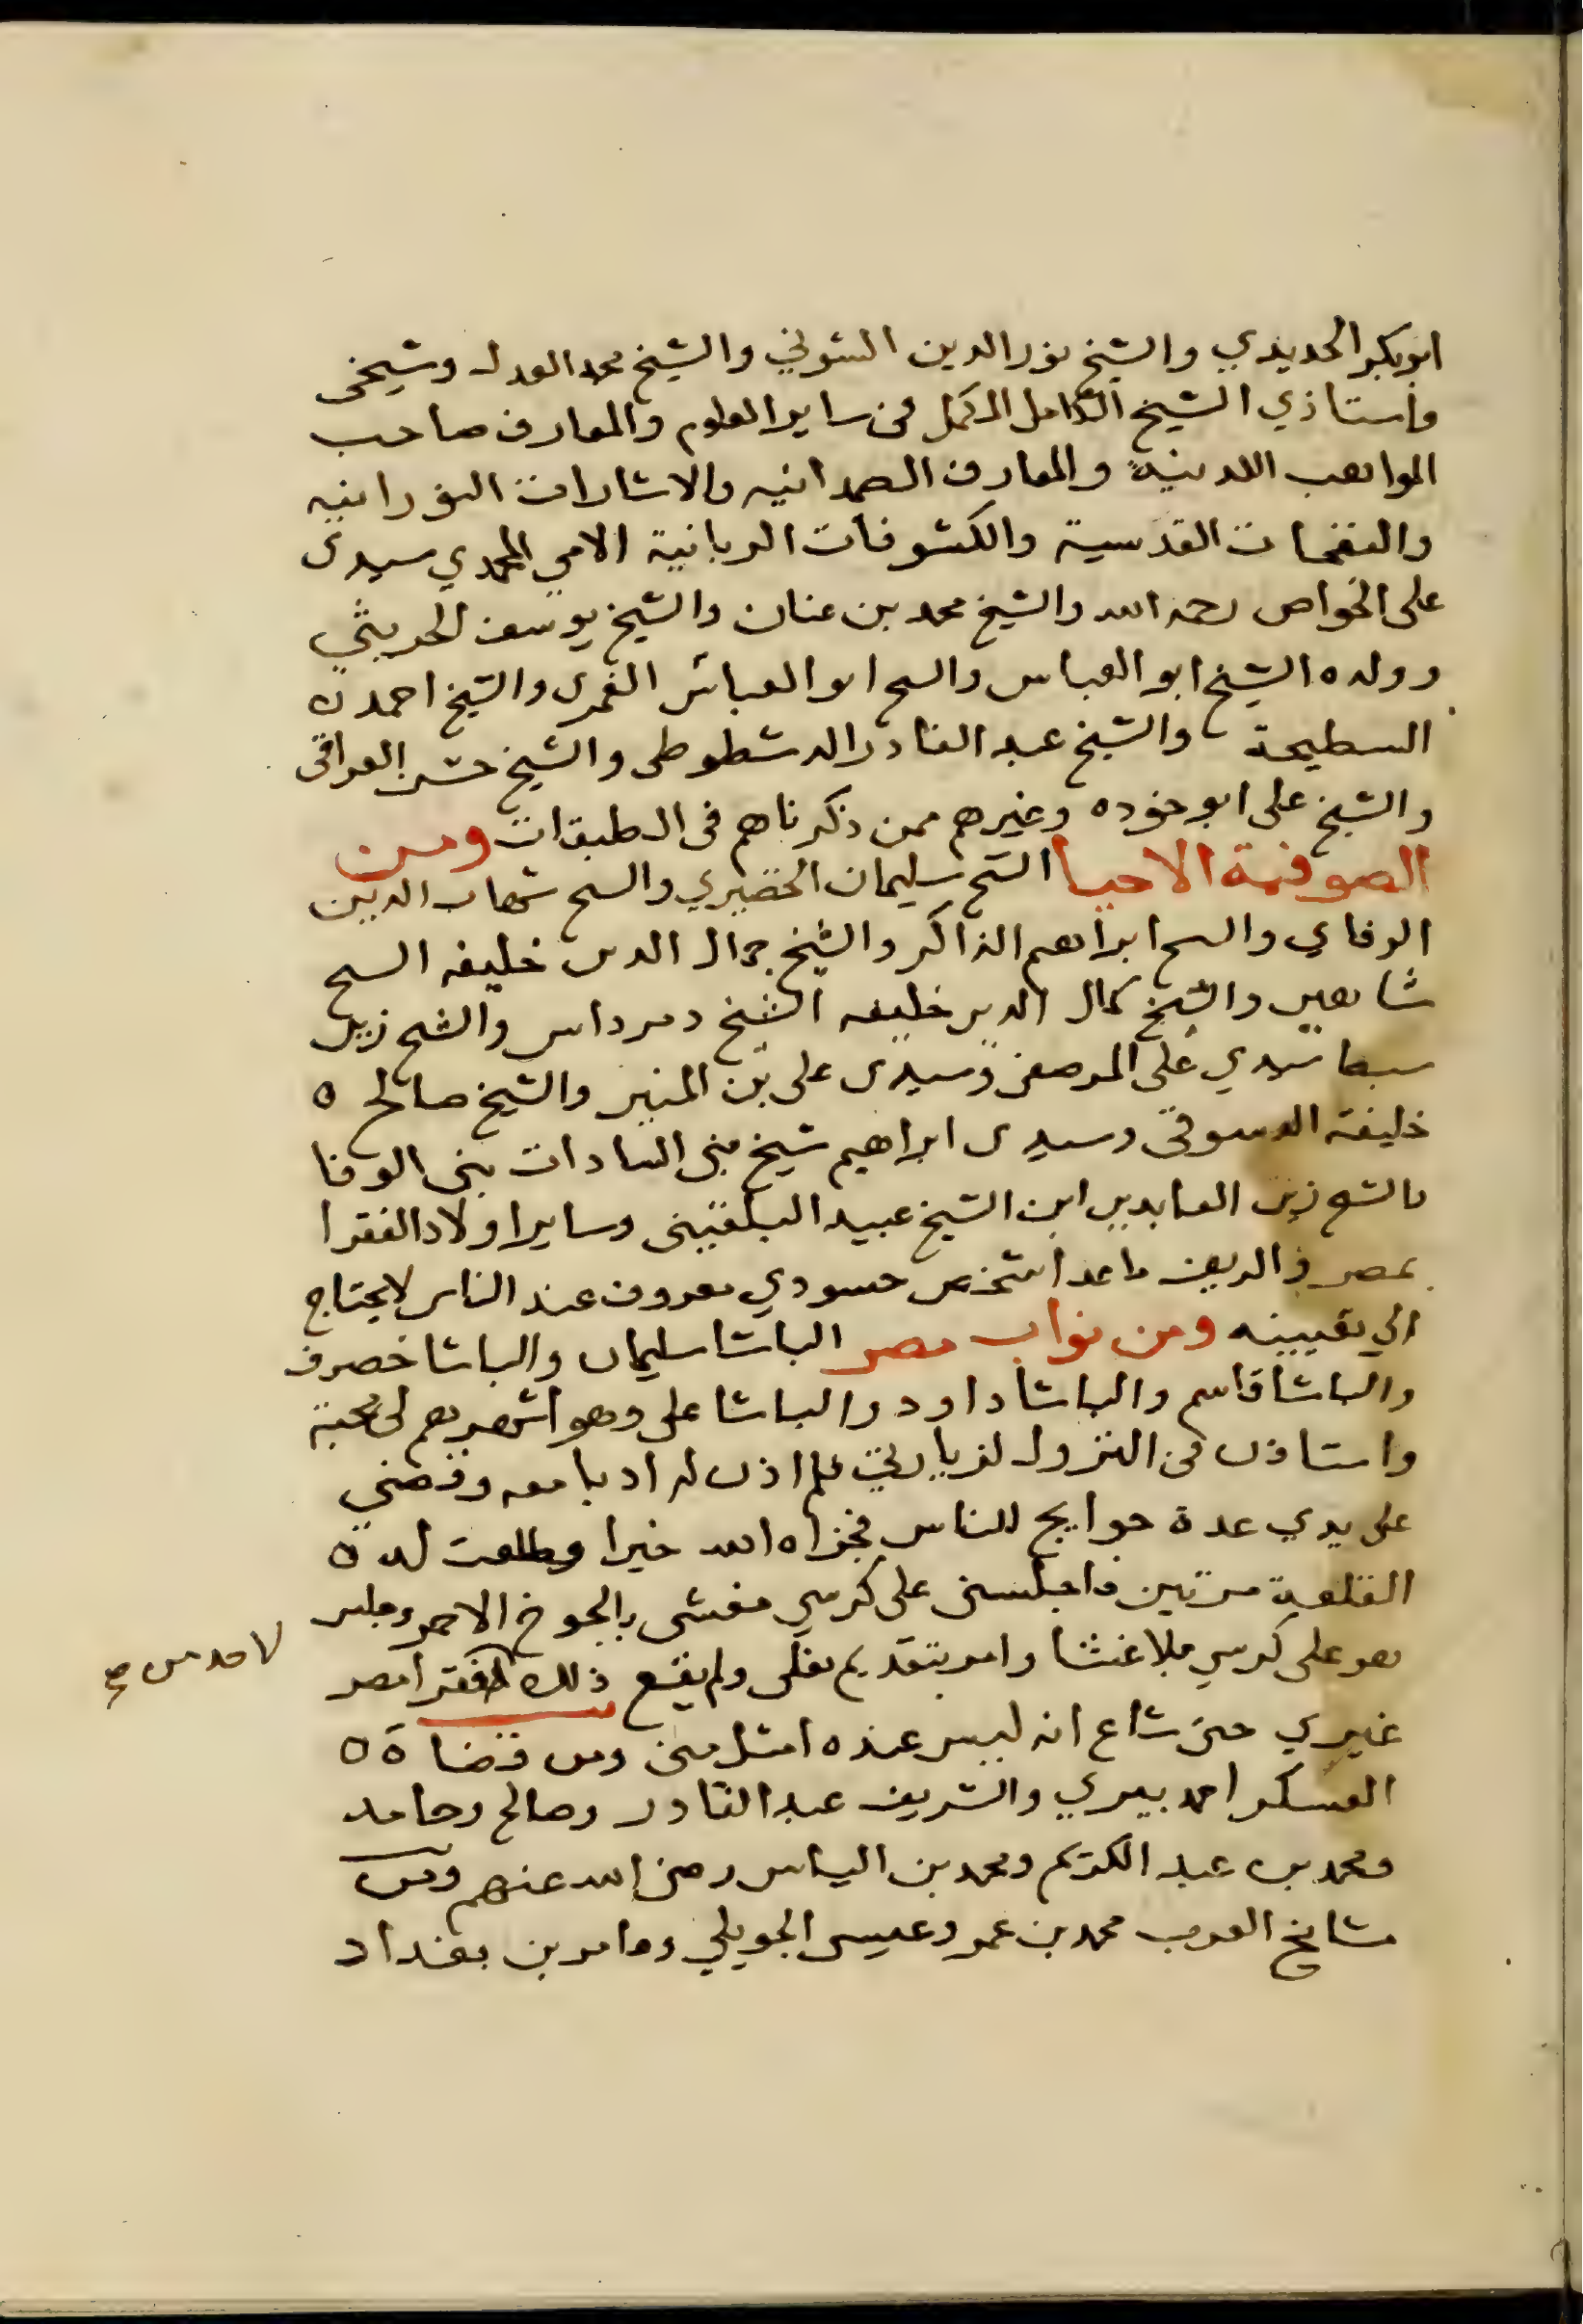 ابو بكر الحديدي والشيخ نور الدين الشوني والشيخ محمد العدل وشيخى
واستاذي الشيخ الكامل المكمل فى ساير العلوم والمعارف صاحب
المواهب اللدنية والمعارف الصمدانيه والاشارات النورانيه
والنفحات القدسية والكشوفات الربانية الامي المحمدي سيدى
على الخواص رحمه الله والشيخ محمد بن عنان والشيخ يوسف الحريثي
وولده الشيخ ابو العباس والسح ابو العباس الغمرى والشيخ احمد ه
السطيحة والشيخ عبد القادر الدشطوطى والشيخ حسن العراقى
والشيخ على ابو خوده وغيرهم ممن ذكرناهم فى الطبقات ومن
الصوفية الاحيا الشح سليمان الخضيري والسح شهاب الدين
الوفاي والسح ابراهيم الذاكر والشيخ جمال الدين خليفه السح
شاهين والشيخ كمال الدين خليفه الشيخ دمرداس والشح زين
سبط سيدي على المرصفى وسيدى على بن المنير والشيخ صالح ه
خليفة الدسوقى وسيدى ابراهيم شيخ بنى السادات بنى الوفا
والشح زين العابدين ابن الشيخ عبيد البلقينى وساير اولاد الفقرا
بمصر والريف ما عدا شخص حسودي معروف عند الناس لا يحتاج
الى تعيينه ومن نواب مصر الباشا سليمان والباشا خصرف
والباشا قاسم والباشا داود والباشا على وهو اشهرهم لى محبة
واستاذن فى النزول لزيارتي فلم اذن له ادبا معه وقضي
على يدي عدة حوايج للناس فجزاه الله خيرا وطلعت له ه
القلعة مرتين فاجلسنى على كرسي مغشى بالجوخ الاحمر وجلس
هو على كرسي بلا غشا وامر بتقديم نعلى ولم يقع ذلك لفقرا مصر
لاحد من صح
غيري حتى شاع انه ليس عنده امثل منى ومن قضاة ه
العسكر احمد بيري والشريف عبد القادر وصالح وحامد
ومحمد بن عبد الكريم ومحمد بن الياس رضى الله عنهم ومن
مشايخ العرب محمد بن عمر وعيسى الجويلي وعامر بن بغداد